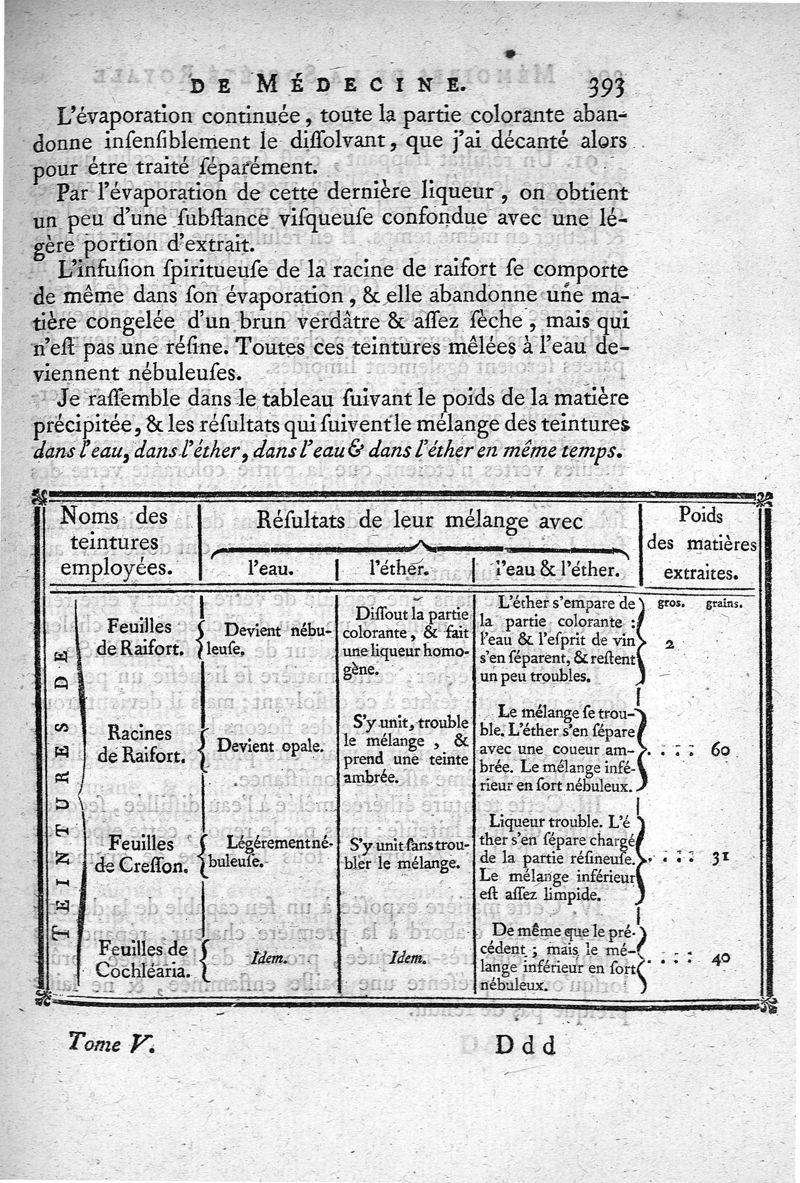 DE MÉDECINE. 393
L'évaporation continuée, toute la partie colorante aban-
donne inſenſiblement le diſſolvant, que j'ai décanté alors
pour étre traité ſéparément.
Par l'évaporation de cette dernière liqueur, on obtient
un peu d'une ſubſtance viſqueuſe confondue avec une lé-
gère portion d'extrait.
L'infuſion ſpiritueuſe de la racine de raifort ſe comporte
de même dans ſon évaporation, & elle abandonne une ma-
tière congelée d'un brun verdâtre & aſſez ſèche, mais qui
n'eſt pas une réſine. Toutes ces teintures mêlées à l'eau de-
viennent nébuleuſes.
Je raſſemble dans le tableau ſuivant le poids de la matière
précipitée, & les réſultats qui ſuivent le mélange des teintures
dans l'eau, dans l'éther, dans l'eau & dans l'éther en même temps.
Noms des
teintures
employées.
Réſultats de leur mélange avec
l'eau. | l'éther. | l'eau & l'éther.
Poids
des matières
extraites.
gros. grains.
TEINTURES DE
Feuilles
de Raifort.
Devient nébu-
leuſe.
Diſſout la partie
colorante, & fait
une liqueur homo-
gène.
L'éther s'empare de
la partie colorante :
l'eau & l'eſprit de vin
s'en ſéparent, & reſtent
un peu troubles.
2
Racines
de Raifort.
Devient opale.
S'y unit, trouble
le mélange, &
prend une teinte
ambrée.
Le mélange ſe trou-
ble. L'éther s'en ſépare
avec une coueur am-
brée. Le mélange infé-
rieur en ſort nébuleux.
60
Feuilles
de Creſſon.
Légérement né-
buleuſe.
S'y unit ſans trou-
bler le mélange.
Liqueur trouble. L'é
ther s'en ſépare chargé
de la partie réſineuſe.
Le mélange inférieur
eſt aſſez limpide.
31
Feuilles de
Cochléaria.
Idem.
Idem.
De même que le pré-
cédent ; mais le mé-
lange inférieur en ſort
nébuleux.
40
Tome V. Ddd